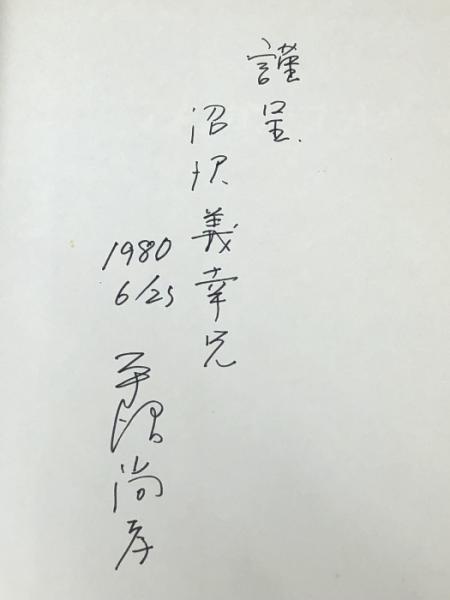 謹呈.
沼沢義幸兄
1980
6/25
平 尚孝